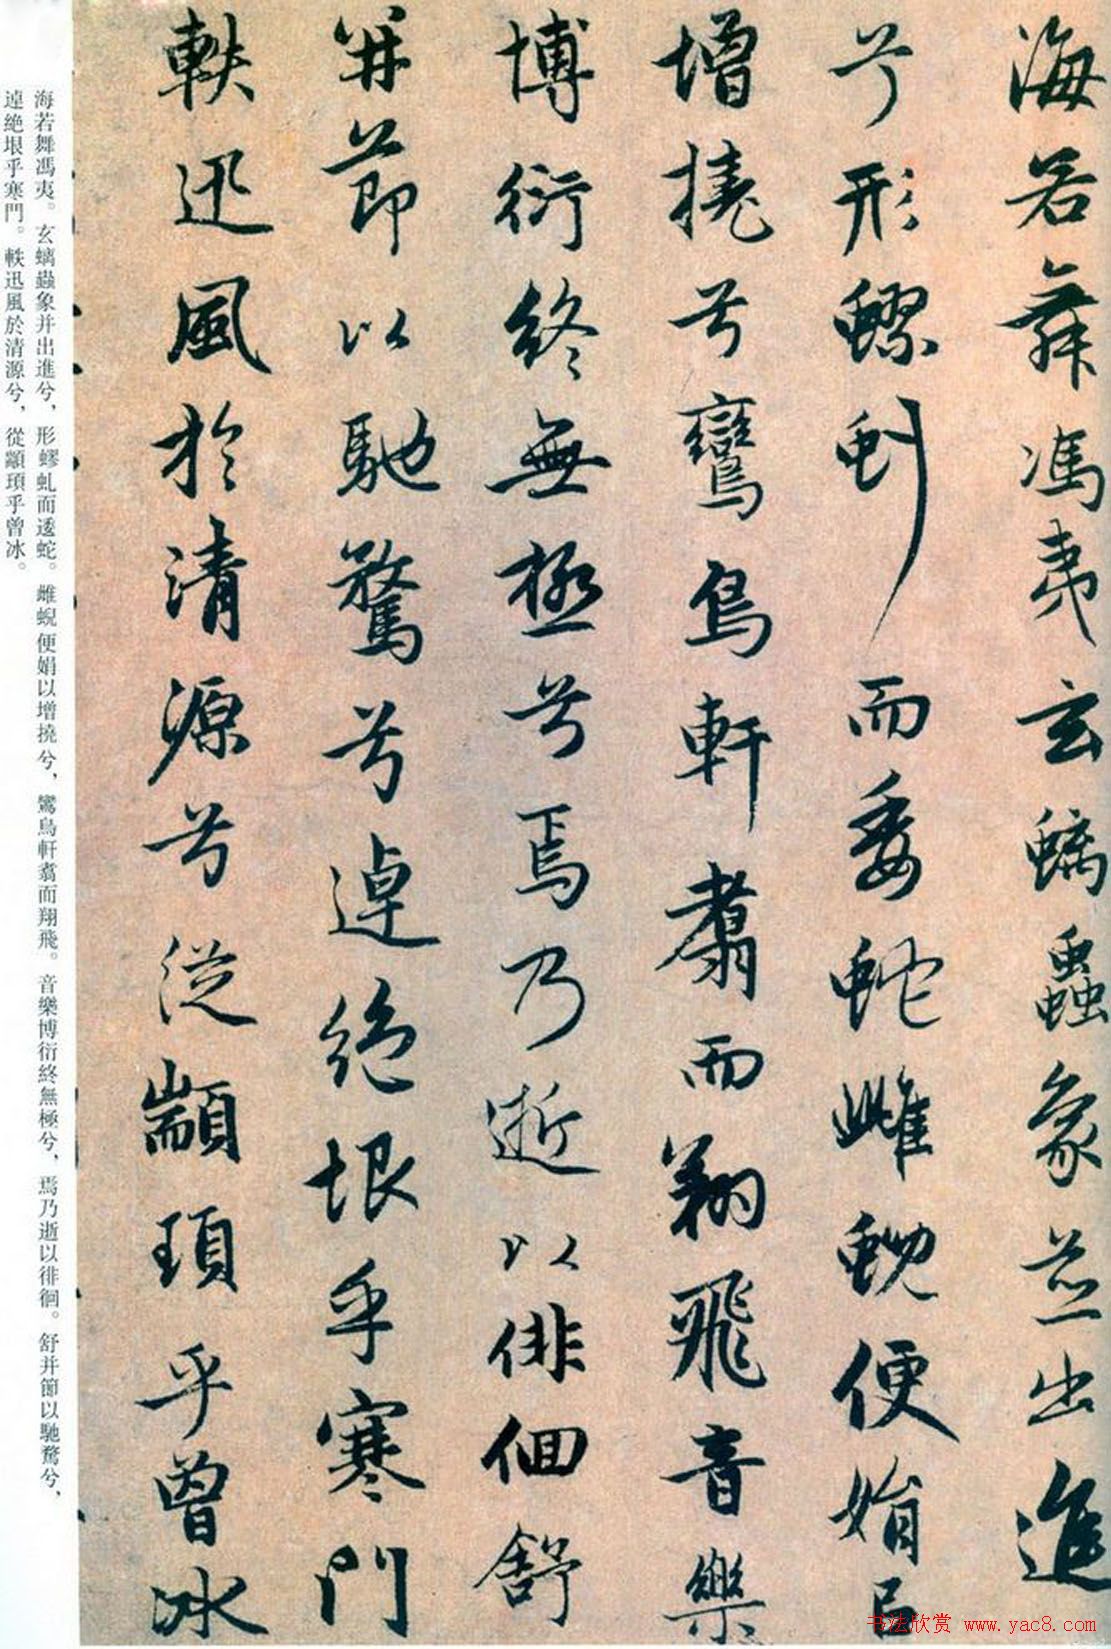 海若舞馮夷玄螭蟲象並出進
兮形蟉虯而委蛇雌蜺便娟㠯
增撓兮鸞鳥軒翥而翔飛音樂
博衍終無極兮焉乃逝以俳佪舒
并節以馳騖兮逴絕垠乎寒門
軼迅風於清源兮從顓頊乎曾冰
海若舞馮夷。玄螭蟲象并出進兮，形蟉虬而逶蛇。雌蜺便娟以增撓兮，鸞鳥軒翥而翔飛。音樂博衍終無極兮，焉乃逝以徘徊。舒并節以馳騖兮，
逴絶垠乎寒門。軼迅風於清源兮，從顓頊乎曾冰。
书法欣赏 www.yac8.com